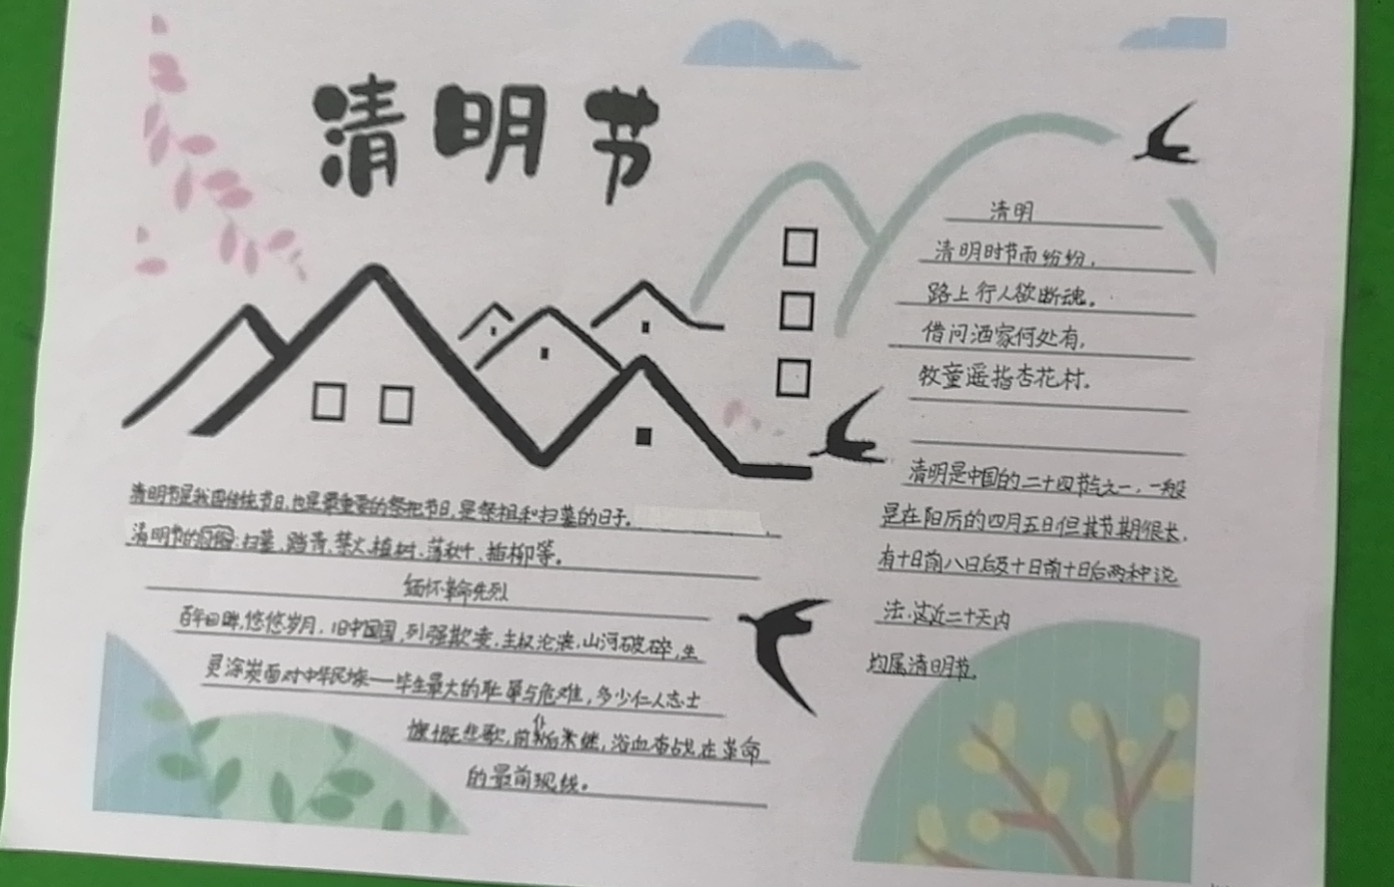 清明节
清明
清明时节雨纷纷,
路上行人欲断魂。
借问酒家何处有,
牧童遥指杏花村。
清明是中国的二十四节气之一,一般
是在阳历的四月五日但其节期很长,
有十日前八日后及十日前十日后两种说
法,这近二十天内
均属清明节。
清明节是我国传统节日,也是最重要的祭祀节日,是祭祖和扫墓的日子。
清明节的习俗:扫墓、踏青、禁火、植树、荡秋千、插柳等。
缅怀革命先烈
百年回眸,悠悠岁月,旧中国国,列强欺凌,主权沦丧,山河破碎,生
灵涂炭面对中华民族一毕生最大的耻辱与危难,多少仁人志士
慷慨悲歌,前仆后继,浴血奋战在革命
的最前现线。